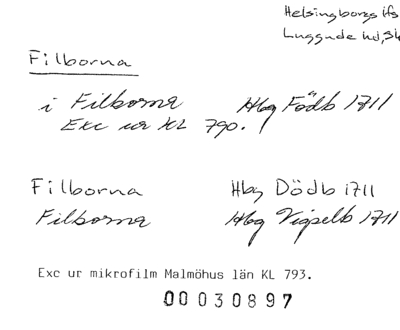 Helsingborgs lfs
Luggude hd, Sk
Filborna
i Filborna Hbg Födb 1711
Exc ur KL 790.
Filborna Hbg Dödb 1711
Filborna Hbg Vigselb 1711
Exc ur mikrofilm Malmöhus län KL 793.
00030897